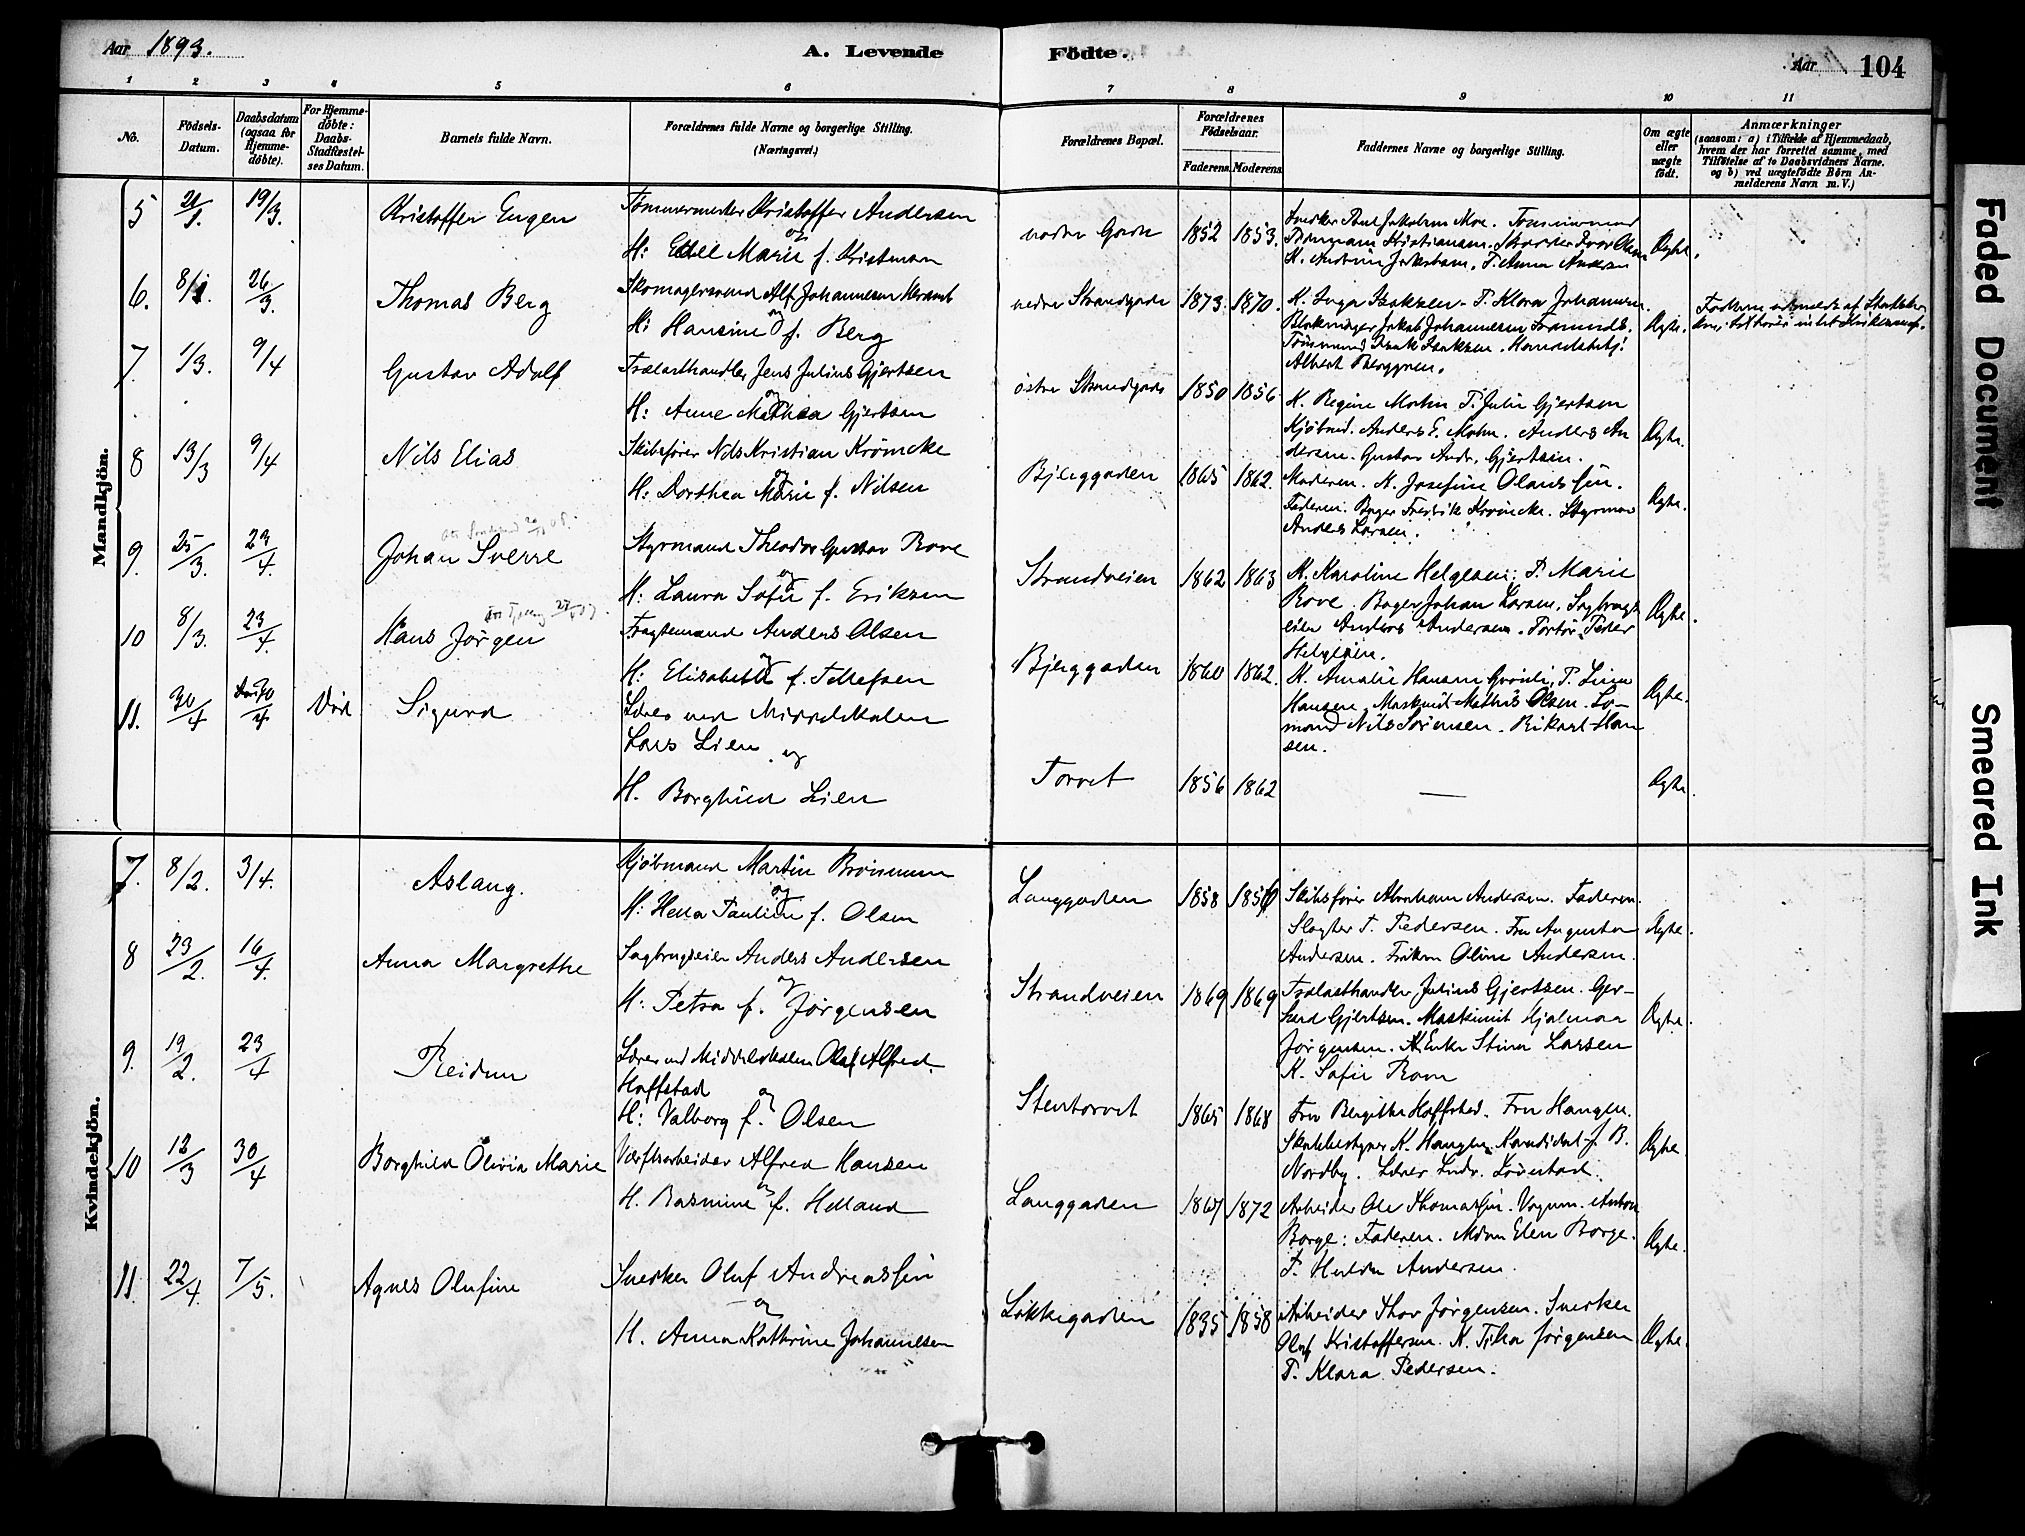 Aar 1893.
A. Levende Födte.
Aar 104
1 2 3 4 5 6 7 8 9 10 11
No.
Födsels-Datum.
Daabsdatum (ogsaa for Hjemmedöbte).
For Hjemmedöbte: Daabs-Stadfæstelses Datum.
Barnets fulde Navn.
Forældrenes fulde Navne og borgerlige Stilling.
(Næringsvei.)
Forældrenes Bopæl.
Forældrenes Födselsaar.
Faderens Moderens
Faddernes Navne og borgerlige Stilling.
Om ægte eller uægte födt.
Anmærkninger
(saasom: a) i Tilfælde af Hjemmedaab, hvem der har forrettet samme, med Tilföielse af to Daabsvidners Navne. og b) ved uægtefödte Börn Anmelderens Navn m. V.)
Mandkjön.
5 21/1. 19/3. Kristoffer Eugen
Tømmermester Kristoffer Andersen
og
H: Marie f. Kristensen
nedre Gade 1852 1853.
Snedker Jakobsen Moe. Tømmermand
Kristiansen. Olsen
K. Jakobsen. P. Anna Andersen
Ægte.
6. 8/1. 26/3. Thomas Berg
Skomagersvend Alf Johannesen
og
H: Hansine f. Berg
nedre Strandgade 1873. 1870.
K. Inga Isaksen. P. Klara Johannesen.
Jakob Johannesen
Isak Isaksen.
Albert Berggren.
Ægte.
Faderen udmeldt af Statskirken,
7. 1/3. 9/4 Gustav Adolf
Trælasthandler Jens Julius Gjertsen
og
H: Anne Mathea Gjertsen
østre Strandgade 1850 1856
K. Regine Mohn P. Julie Gjertsen
Kjøbmd. Anders E. Mohn. Anders An
dersen. Gustav Andr. Gjertsen.
Ægte.
8 13/3 9/4 Nils Elias
Skibsfører Nils Kristian Krömcke
og
H: Dorthea Marie f. Nilsen
Bjerggaden 1865 1862.
Moderen. K. Josefine Olaussen.
Faderen. Bager Fredrik Krömcke. Styrmand
Anders Larsen.
Ægte.
9. 25/3. 23/4. Johan Sverre
Styrmand Theodor Gustav Bove
og
H: Laura Sofie f. Eriksen
Strandveien 1862 1863
K. Karoline Helgesen. P. Marie
Bove. Bager Johan Larsen. Sagbrugs
eier Anders Andersen. Peder
Helgesen.
Ægte.
10 8/3. 23/4. Hans Jørgen
Fragtemand Anders Olsen
og
H: Elisabeth f. Tollefsen
Bjerggaden 1860 1862.
K. Amalie Hansen P. Lina
Hansen. Maskinist Mathis Olsen. Lo-
mand Nils Sørensen. Rikard Han
sen.
Ægte.
11. 30/4 30/4 Död Sigurd
Lærer ved Middelskolen
Lars Lien
og
H. Borghild Lien
Torvet 1856 1862 —
Ægte.
Kvindekjön.
7. 8/2. 3/4. Aslaug.
Kjöbmand Martin Brönmum
og
H: Helle Pauline f. Olsen
Langgaden 1858 1856
Skibsfører Abraham Andersen. Faderen.
Slagter T. Pedersen. Fru Augusta
Andersen. Frøken Oline Andersen.
Ægte.
8 23/2. 16/4. Anna Margrethe
Sagbrugseier Anders Andersen
og
H: Petra f. Jørgensen
Strandveien 1869 1869
Trælasthandler Julius Gjertsen. Ger-
hard Gjertsen. Maskinist Hjalmar
Jørgensen. Enke Stina Larsen
K. Sofie Bove
Ægte.
9. 19/2. 23/4 Reidun
Lærer ved Middelskolen Olaf Alfred
Hoffstad
og
H: Valborg f. Olsen
Stentorvet 1865 1868
Fru Bergitte Hoffstad. Fru Haugen.
Skolebestyrer K. Haugen. Kandidat J. B.
Nordby. Lærer Andr. Lövestad.
Ægte.
10 12/3 30/4 Borghild Olivia Marie
Værftsarbeider Alfred Hansen
og
H. Rasmine f. Helland
Langgaden 1867 1872
Arbeider Ole Thomassen. Vognm. Anton
Borge: Faderen. Mdm Elen Borge.
P. Hulda Andersen.
Ægte.
11. 22/4. 7/5. Agnes Olufine
Snedker Oluf Andreassen
og
H. Anna Kathrine Johannesen
Løkkegaden 1835 1858
Arbeider Thor Jørgensen. Snedker
Oluf Kristoffersen. K. Tilla Jørgensen
P. Klara Pedersen.
Ægte.
Faded Document
Smeared Ink